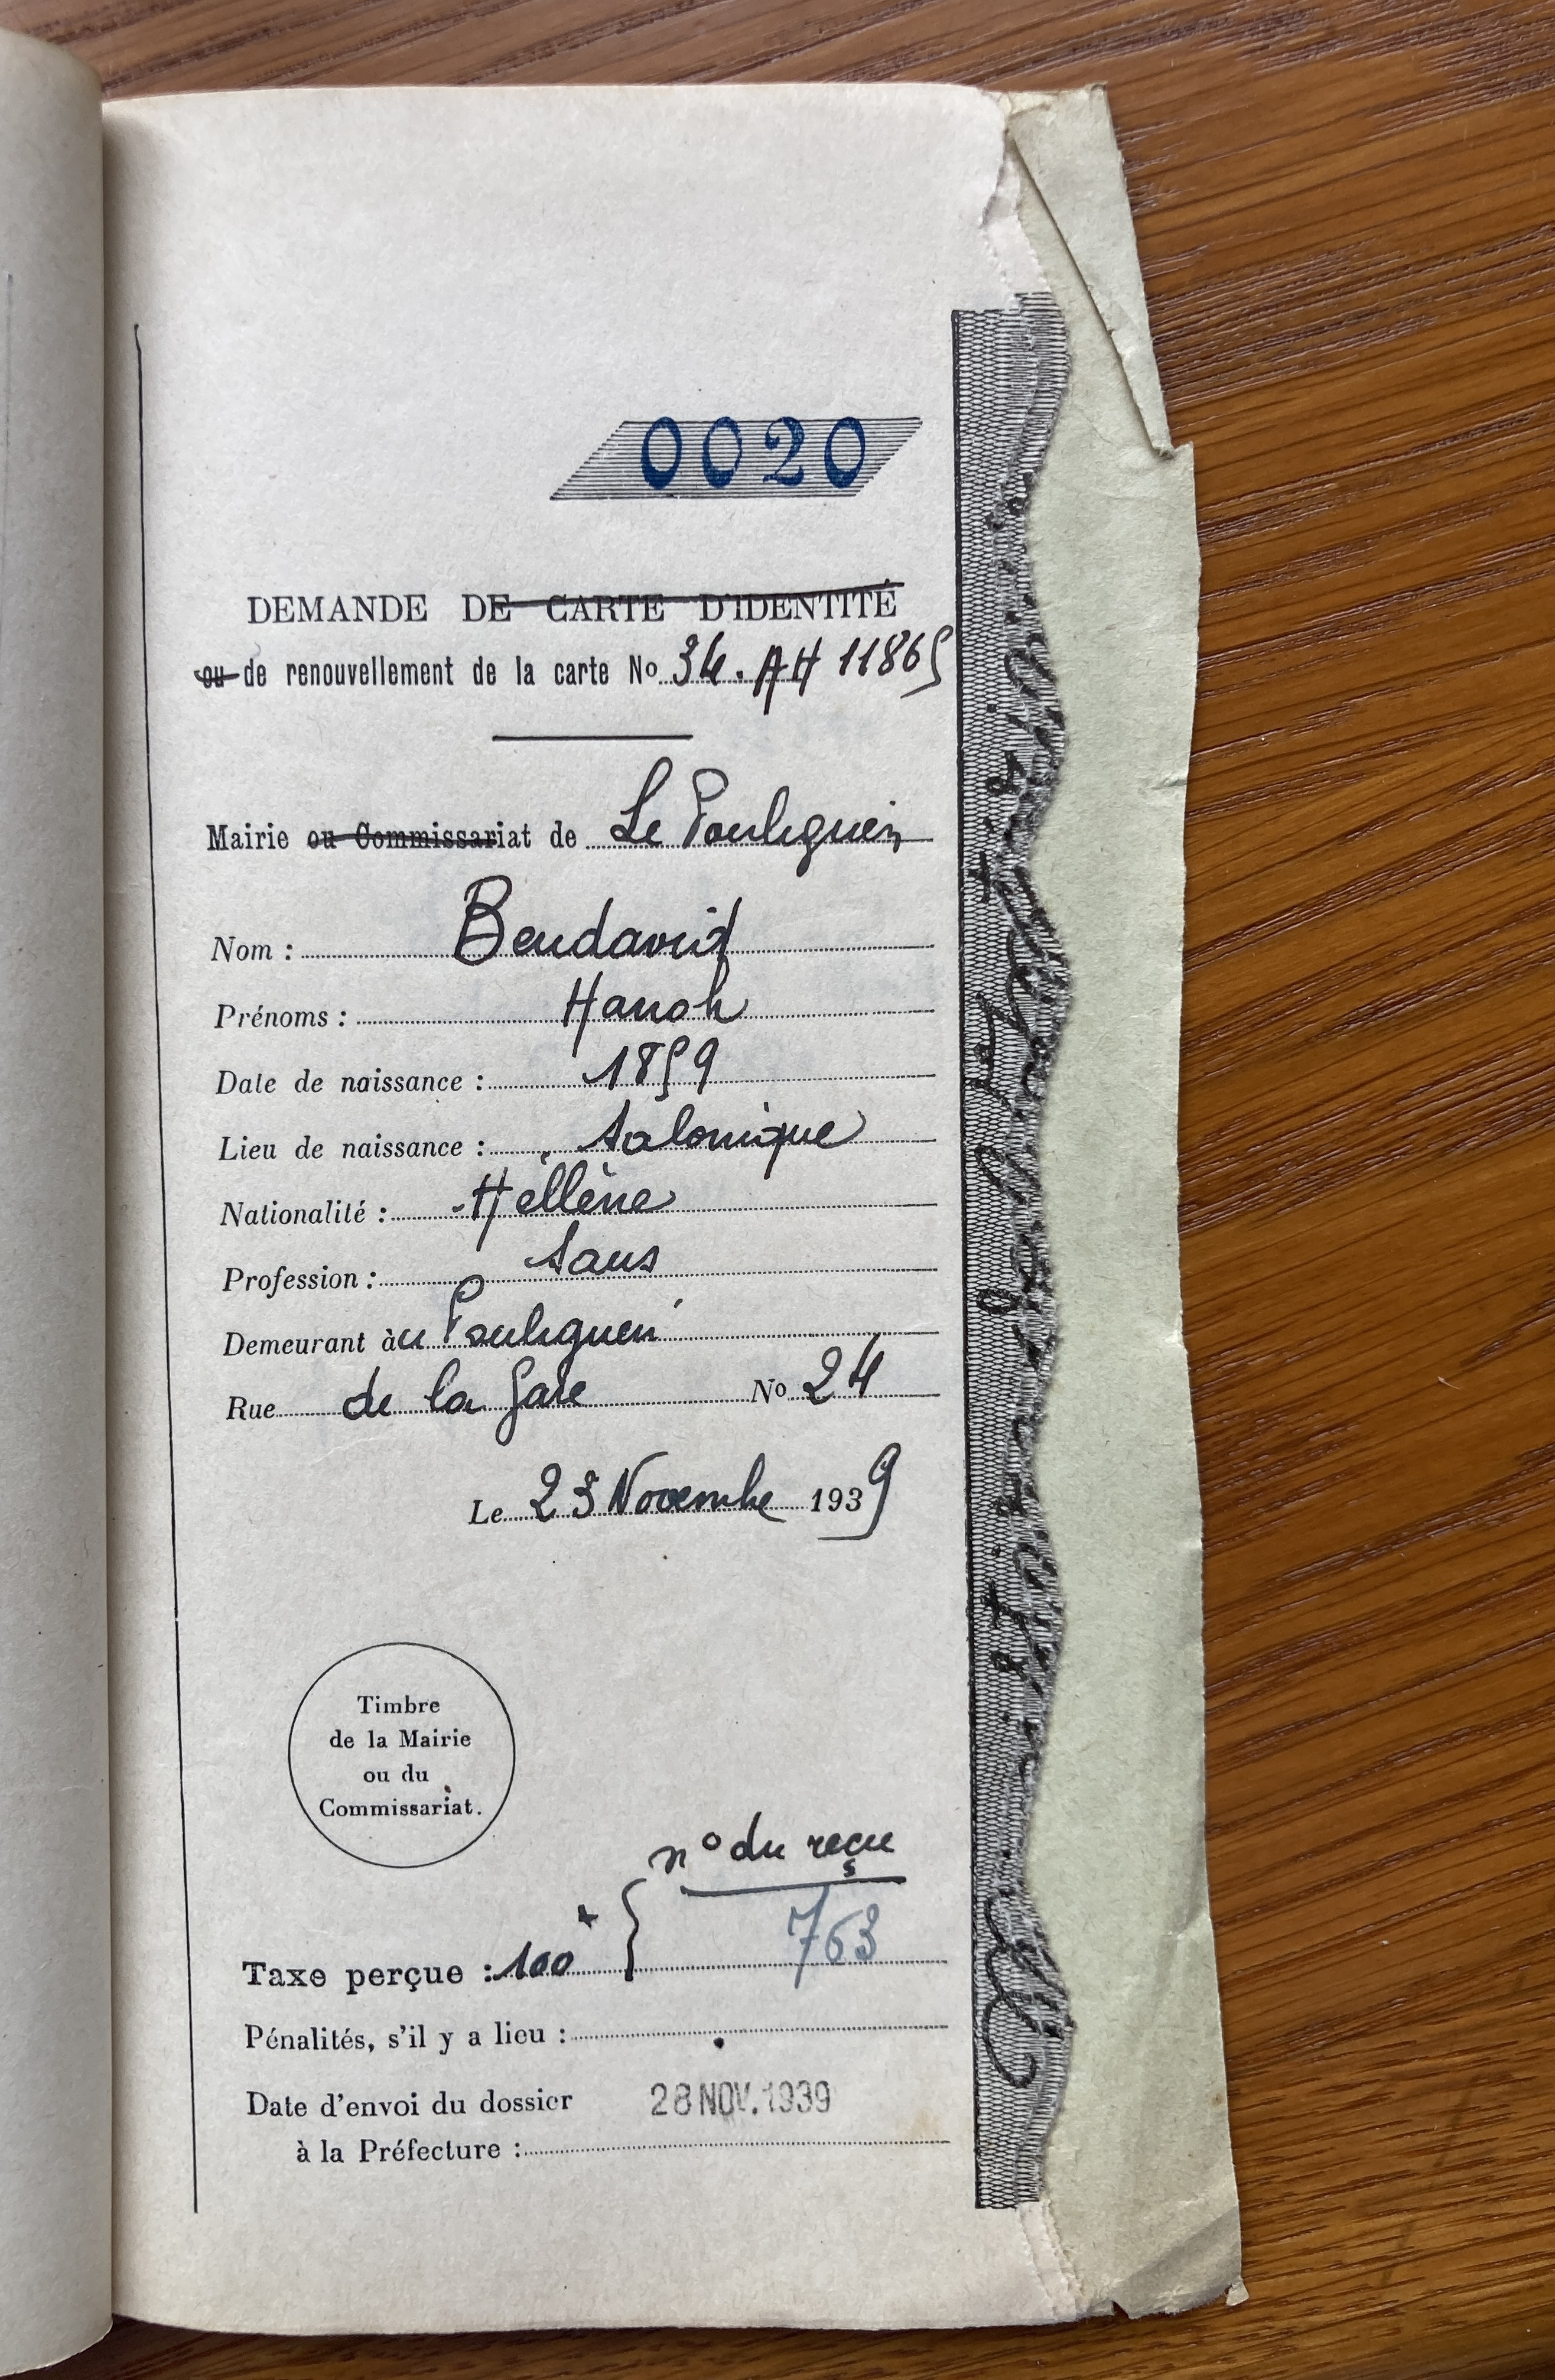 0020
DEMANDE DE CARTE D'IDENTITÉ
ou de renouvellement de la carte No 34. AH 11865
Mairie ou Commissariat de Le Pouliguen
Nom : Bendavid
Prénoms : Hanoh
Date de naissance : 1859
Lieu de naissance : Salonique
Nationalité : Hellène
Profession : Sans
Demeurant àu Pouliguen
Rue de la Gare No 24
Le 23 Novembre 1939
Timbre
de la Mairie
ou du
Commissariat.
n° du reçu
Taxe perçue : 100 763
Pénalités, s'il y a lieu :
Date d'envoi du dossier 28 NOV. 1939
à la Préfecture :